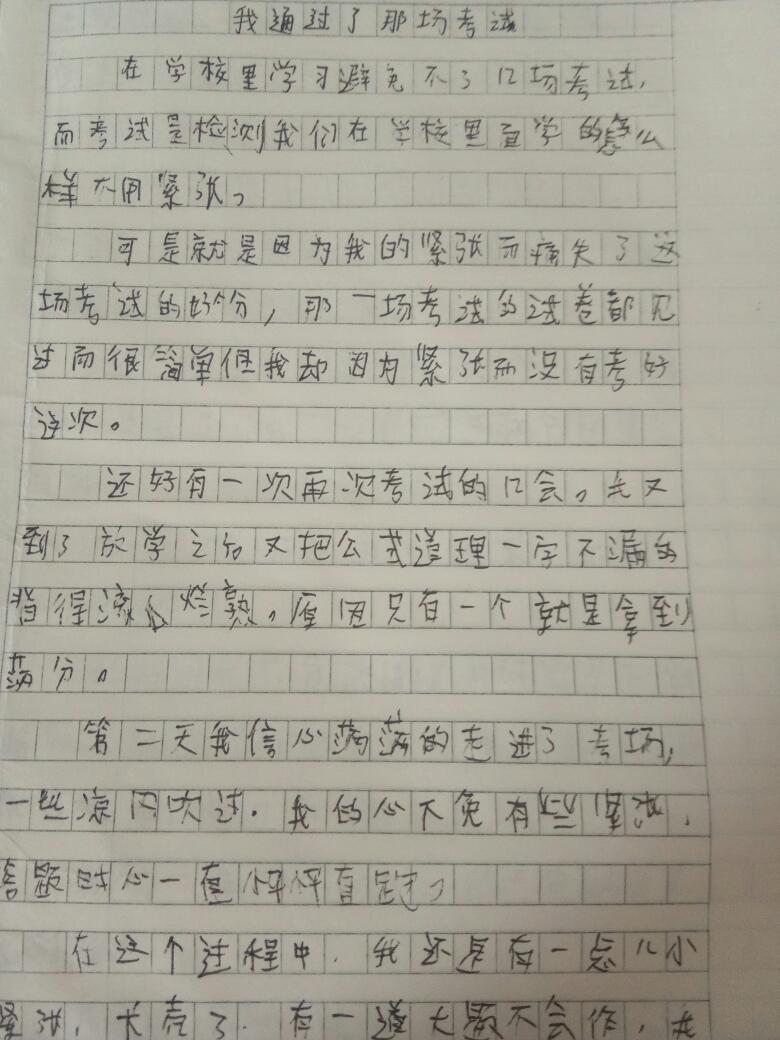 我通过了那场考试
在学校里学习避免不了几场考试，
而考试是检测我们在学校里面学的怎么
样不用紧张。
可是就是因为我的紧张而痛失了这
场考试的好分，那一场考试的试卷都见
过而很简单但我却因为紧张而没有考好
这次。
还好有一次再次考试的几会。我又
到了放学之后又把公式道理一字不漏的
背得滚瓜烂熟。原因只有一个就是拿到
满分。
第二天我信心满满的走进了考场，
一些凉风吹过。我的心不免有些紧张，
答题时心一直怦怦直跑。
在这个过程中，我还是有一点儿小
紧张，有一道大题不会作，我